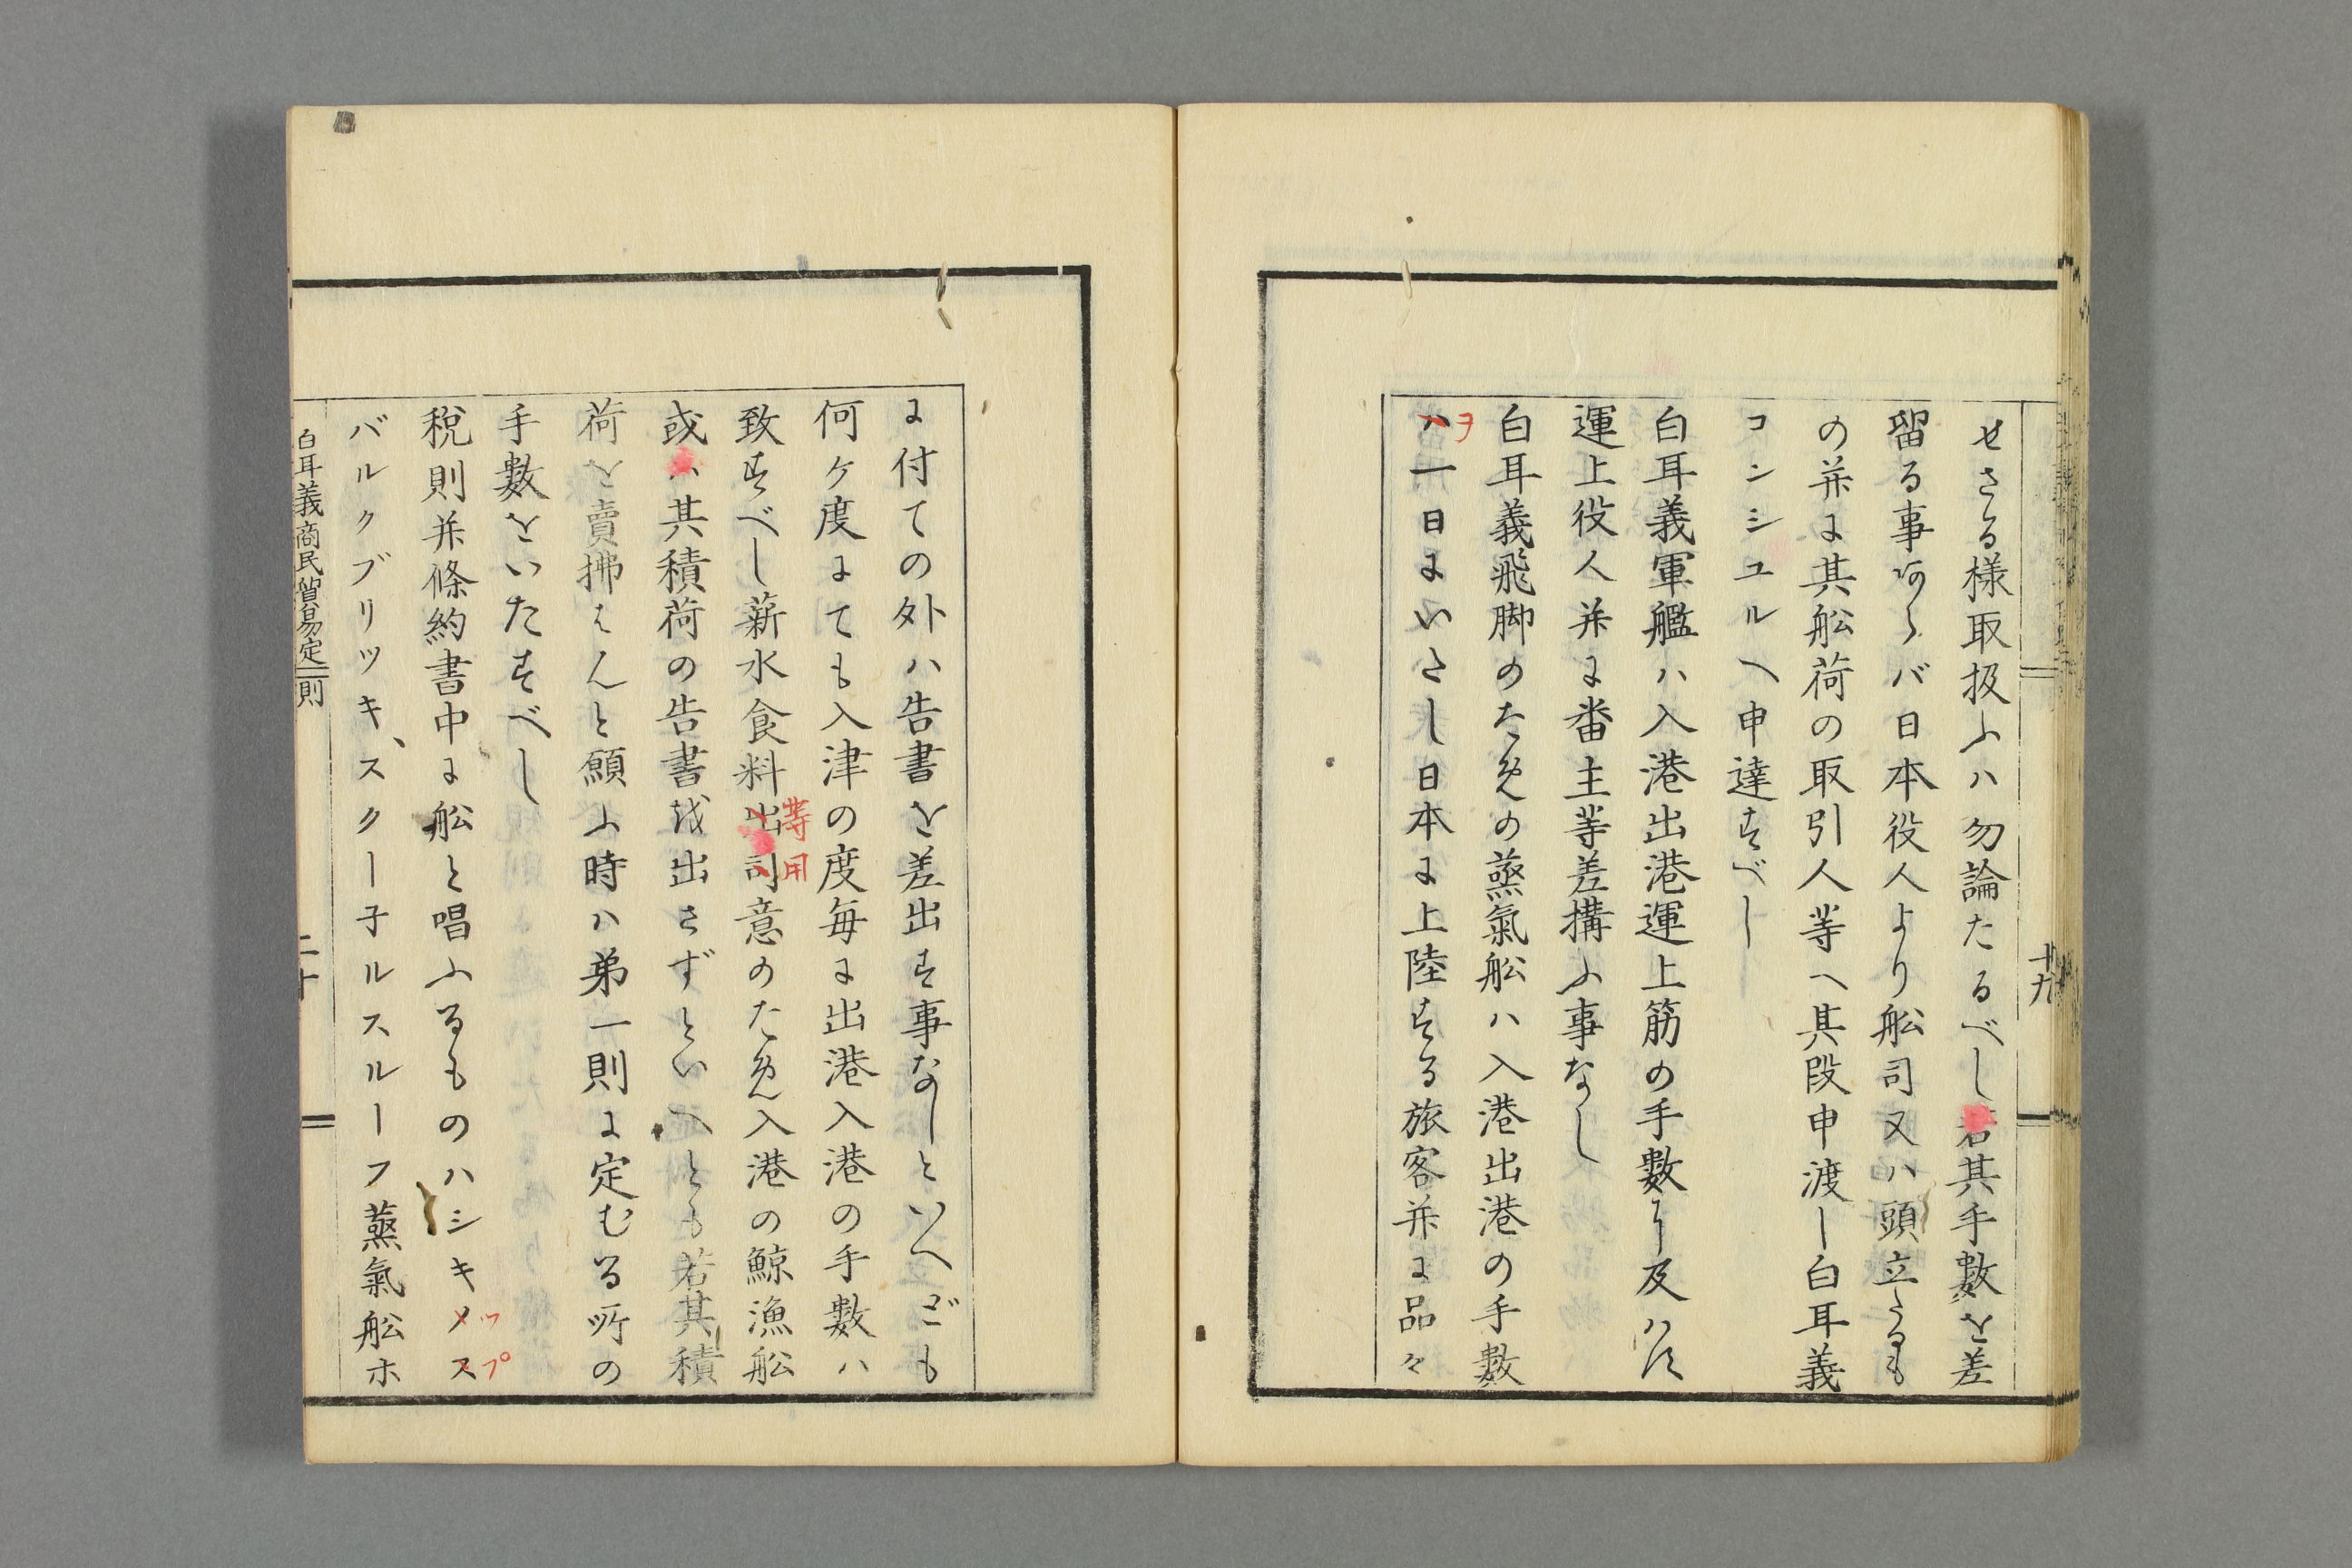 十九
せさる様取扱ふハ勿論たるべし若其手數を差
留る事あらバ日本役人より舩司又ハ頭立たるも
の并に其舩荷の取引人等へ其段申渡し白耳義
コンシユルヘ申達すべし
白耳義軍艦ハ入港出港運上筋の手數に及ハす
運上役人并に番主等差構ふ事なし
白耳義飛脚のための蒸氣舩ハ入港出港の手數
ハ一日にいたし日本に上陸する旅客并に品々
ヲ
に付ての外ハ告書を差出す事なしといへども
何ヶ度にても入津の度毎に出港入港の手數ハ
致すべし薪水食料出司意のため入港の鯨漁舩
等用
或ハ其積荷の告書を出さずといへとも若其積
荷を賣拂はんと願ふ時ハ苐一則に定むる所の
手數をいたすべし
税則并條約書中に舩と唱ふるものハシキメス
ップ
バルクブリツキ、スクー子ルスルーフ蒸氣舩ホ
白耳義商民貿易定 二則
二十